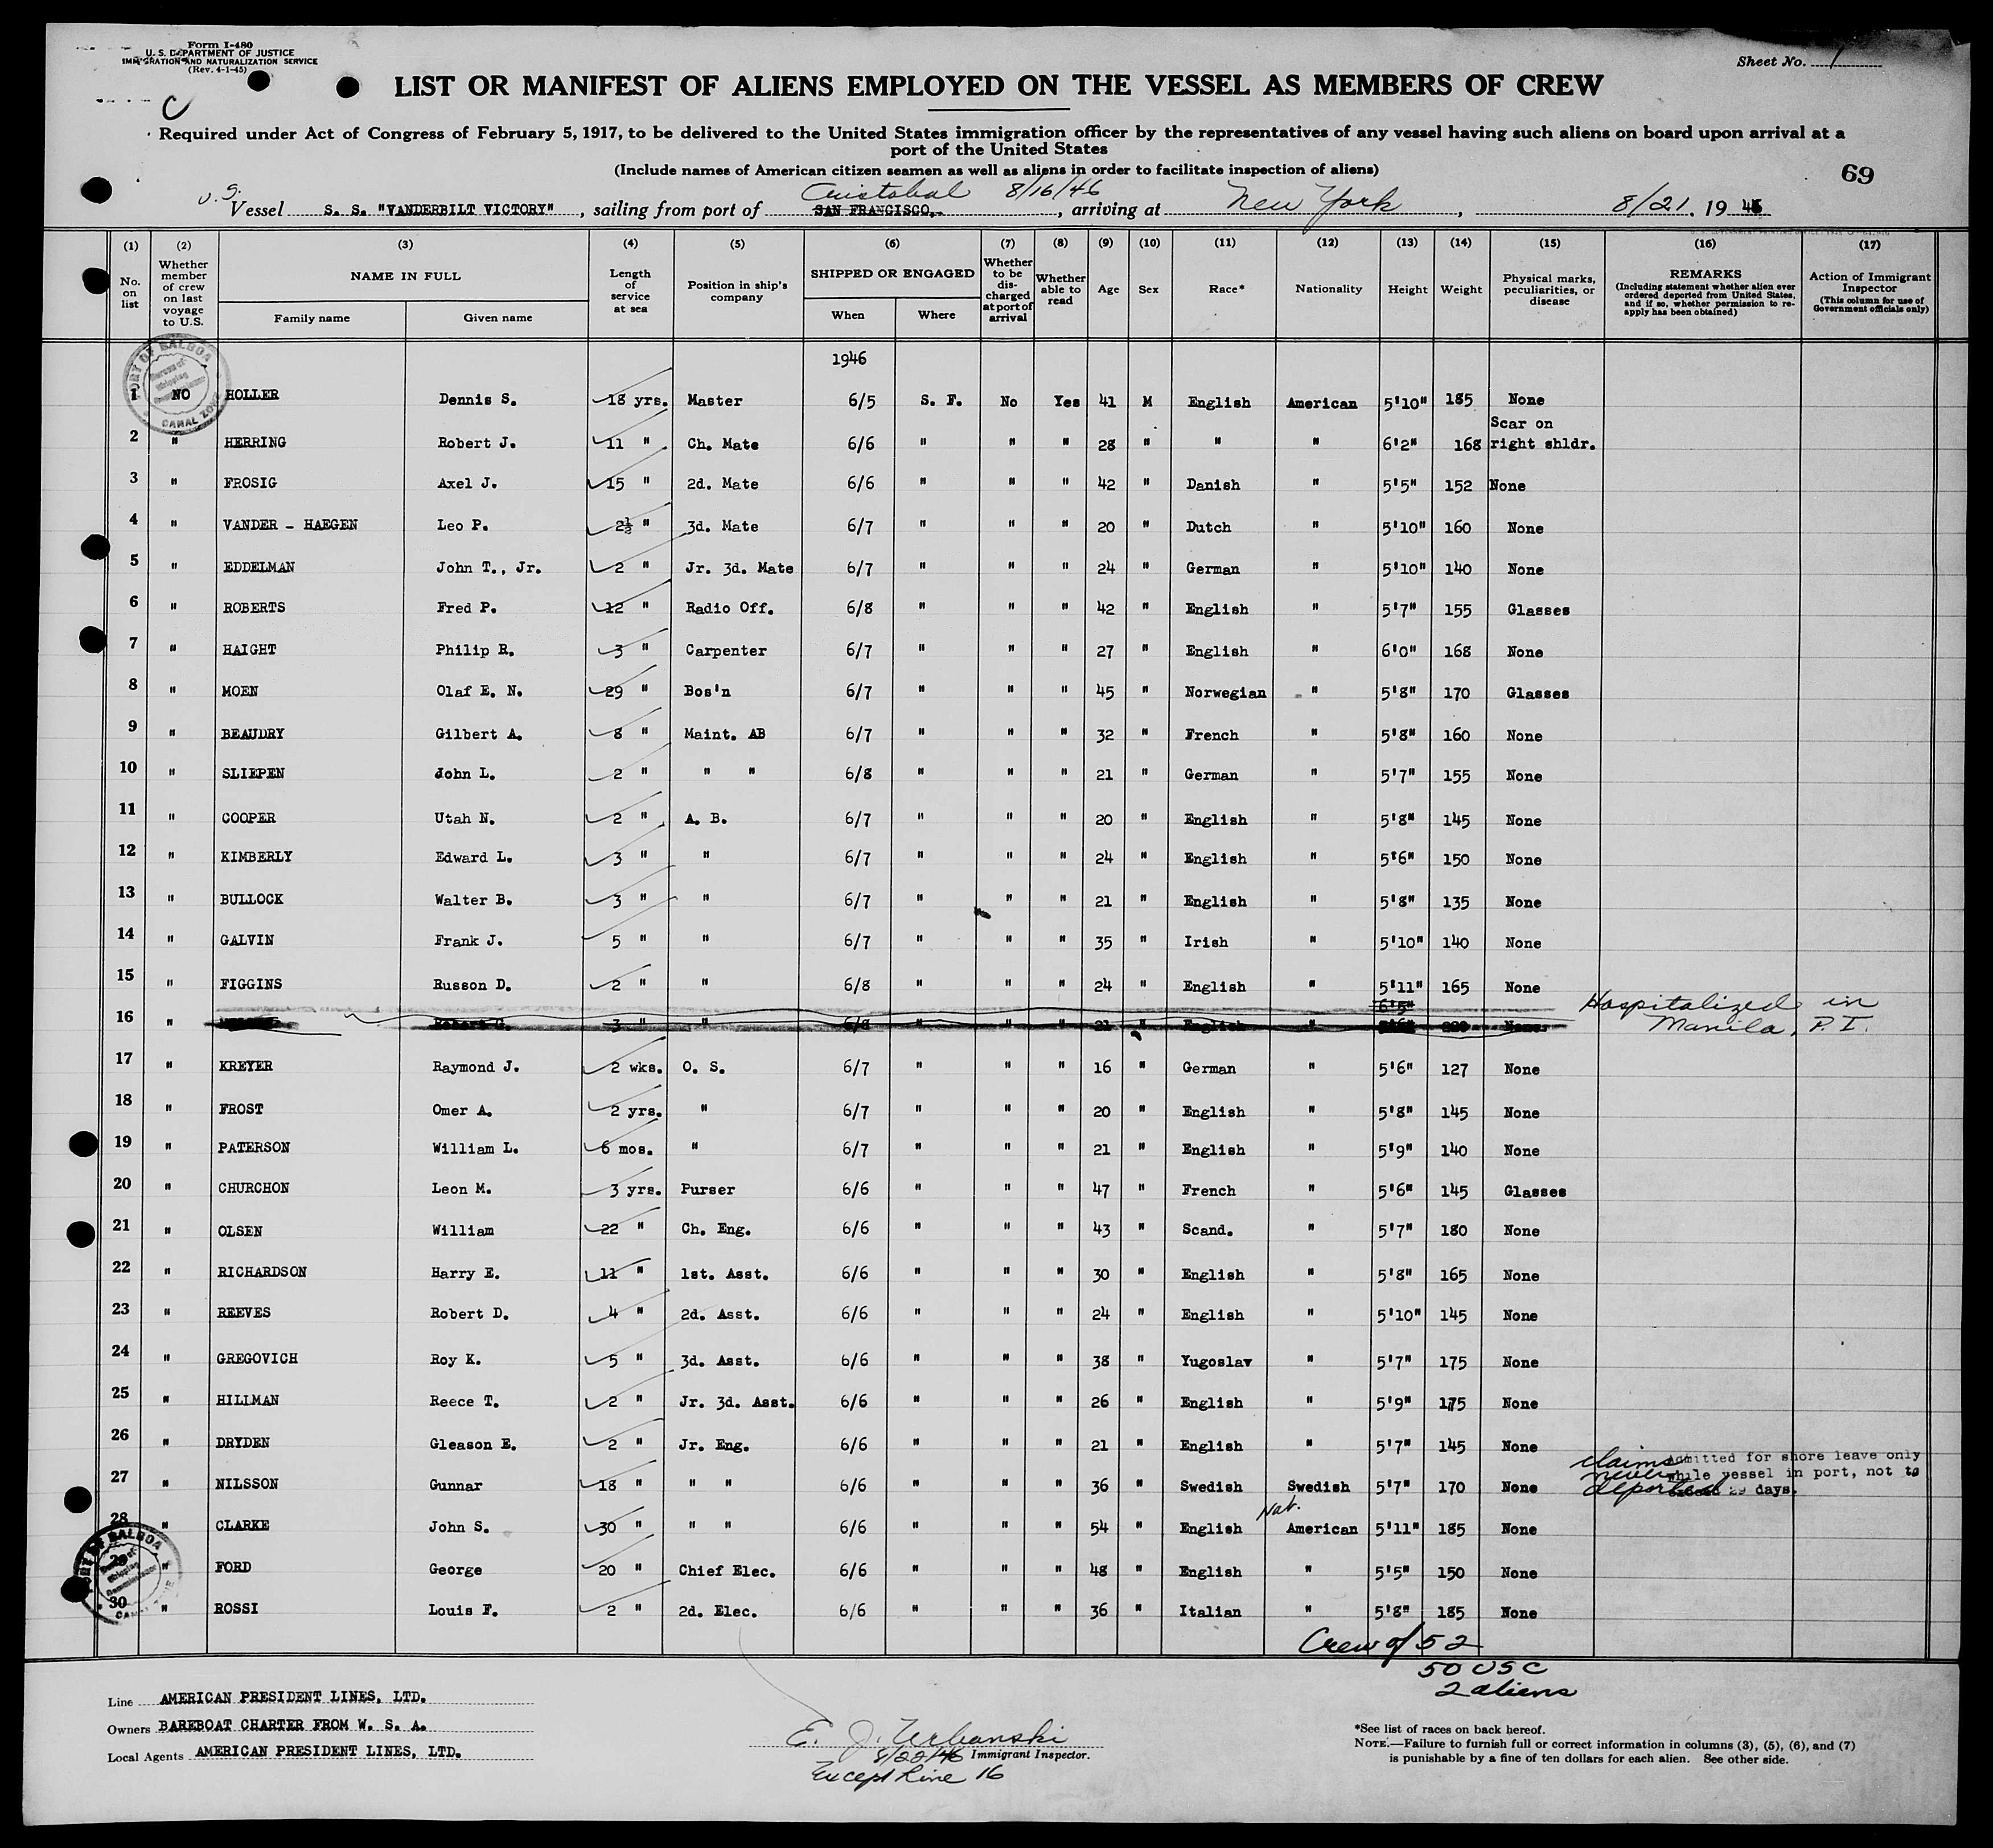 Form I-480
U. S. DEPARTMENT OF JUSTICE
IMMIGRATION AND NATURALIZATION SERVICE
(Rev. 4-1-45)
Sheet No. 1
C
LIST OR MANIFEST OF ALIENS EMPLOYED ON THE VESSEL AS MEMBERS OF CREW
Required under Act of Congress of February 5, 1917, to be delivered to the United States immigration officer by the representatives of any vessel having such aliens on board upon arrival at a
port of the United States
(Include names of American citizen seamen as well as aliens in order to facilitate inspection of aliens)
69
Cristobal 8/16/46
Vessel S. S. "VANDERBILT VICTORY", sailing from port of SAN FRANCISCO, arriving at New York, 8/21, 1946
(1) (2) (3) (4) (5) (6) (7) (8) (9) (10) (11) (12) (13) (14) (15) (16) (17)
No. on list Whether member of crew on last voyage to U.S. NAME IN FULL Family name Given name Length of service at sea Position in ship's company SHIPPED OR ENGAGED When Where Whether to be discharged at port of arrival Whether able to read Age Sex Race* Nationality Height Weight Physical marks, peculiarities, or disease REMARKS (Including statement whether alien ever ordered deported from United States, and if so, whether permission to reapply has been obtained) Action of Immigrant Inspector (This column for use of Government officials only)
PORT OF BALBOA CANAL ZONE
1946
1 NO HOLLER Dennis S. 18 yrs. Master 6/5 S. F. No Yes 41 M English American 5'10" 185 None
2 " HERRING Robert J. 11 " Ch. Mate 6/6 " " " 28 " " " 6'2" 168 Scar on right shldr.
3 " FROSIG Axel J. 15 " 2d. Mate 6/6 " " " 42 " Danish " 5'5" 152 None
4 " VANDER - HAEGEN Leo P. 2½ " 3d. Mate 6/7 " " " 20 " Dutch " 5'10" 160 None
5 " EDDELMAN John T., Jr. 2 " Jr. 3d. Mate 6/7 " " " 24 " German " 5'10" 140 None
6 " ROBERTS Fred P. 12 " Radio Off. 6/8 " " " 42 " English " 5'7" 155 Glasses
7 " HAIGHT Philip R. 3 " Carpenter 6/7 " " " 27 " English " 6'0" 168 None
8 " MOEN Olaf E. N. 29 " Bos'n 6/7 " " " 45 " Norwegian " 5'8" 170 Glasses
9 " BEAUDRY Gilbert A. 8 " Maint. AB 6/7 " " " 32 " French " 5'8" 160 None
10 " SLIEPEN John L. 2 " " " 6/8 " " " 21 " German " 5'7" 155 None
11 " COOPER Utah N. 2 " A. B. 6/7 " " " 20 " English " 5'8" 145 None
12 " KIMBERLY Edward L. 3 " " 6/7 " " " 24 " English " 5'6" 150 None
13 " BULLOCK Walter B. 3 " " 6/7 " " " 21 " English " 5'8" 135 None
14 " GALVIN Frank J. 5 " " 6/7 " " " 35 " Irish " 5'10" 140 None
15 " FIGGINS Russon D. 2 " " 6/8 " " " 24 " English " 5'11" 165 None
16 " Robert G. 3 " " 6/8 " " " 21 " English " 6'5" None Hospitalized in Manila, P. I.
17 " KREYER Raymond J. 2 wks. O. S. 6/7 " " " 16 " German " 5'6" 127 None
18 " FROST Omer A. 2 yrs. " 6/7 " " " 20 " English " 5'8" 145 None
19 " PATERSON William L. 6 mos. " 6/7 " " " 21 " English " 5'9" 140 None
20 " CHURCHON Leon M. 3 yrs. Purser 6/6 " " " 47 " French " 5'6" 145 Glasses
21 " OLSEN William 22 " Ch. Eng. 6/6 " " " 43 " Scand. " 5'7" 180 None
22 " RICHARDSON Harry E. 11 " 1st. Asst. 6/6 " " " 30 " English " 5'8" 165 None
23 " REEVES Robert D. 4 " 2d. Asst. 6/6 " " " 24 " English " 5'10" 145 None
24 " GREGOVICH Roy K. 5 " 3d. Asst. 6/6 " " " 38 " Yugoslav " 5'7" 175 None
25 " HILLMAN Reece T. 2 " Jr. 3d. Asst. 6/6 " " " 26 " English " 5'9" 175 None
26 " DRYDEN Gleason E. 2 " Jr. Eng. 6/6 " " " 21 " English " 5'7" 145 None
27 " NILSSON Gunnar 18 " " " 6/6 " " " 36 " Swedish Swedish 5'7" 170 None claims never deported Admitted for shore leave only while vessel in port, not to exceed 29 days.
28 " CLARKE John S. 30 " " " 6/6 " " " 54 " English Nat. American 5'11" 185 None
29 " FORD George 20 " Chief Elec. 6/6 " " " 48 " English " 5'5" 150 None
30 " ROSSI Louis F. 2 " 2d. Elec. 6/6 " " " 36 " Italian " 5'8" 185 None
PORT OF BALBOA
Crew of 52
50 USC
2 aliens
Line AMERICAN PRESIDENT LINES, LTD.
Owners BAREBOAT CHARTER FROM W. S. A.
Local Agents AMERICAN PRESIDENT LINES, LTD.
E. J. Urbanski
8/22/46 Immigrant Inspector.
Except Line 16
*See list of races on back hereof.
NOTE.—Failure to furnish full or correct information in columns (3), (5), (6), and (7)
is punishable by a fine of ten dollars for each alien. See other side.